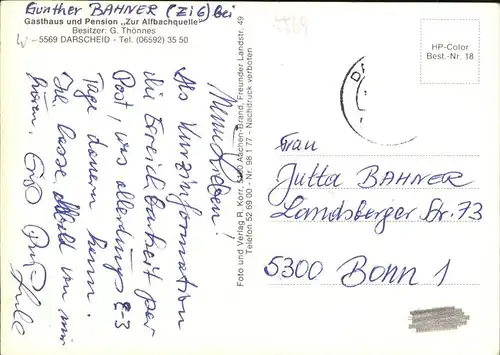 Gunther BAHNER (Zi 6) bei
Gasthaus und Pension „Zur Alfbachquelle"
Besitzer: G. Thönnes
– 5569 DARSCHEID – Tel. (06592) 35 50
Als Kurzinformation
die Erreichbarkeit per
Post, was allerdings 2-3
Tage dauern kann.
von mir
hören.
Foto und Verlag R. Korr, Aachen-Brand, Freunder Landstr. 49
Telefon 52 69 00 - Nr. 98 1 77 - Nachdruck verboten
HP-Color
Best.-Nr. 18
Frau
Jutta BAHNER
Landsberger Str. 73
5300 Bonn 1